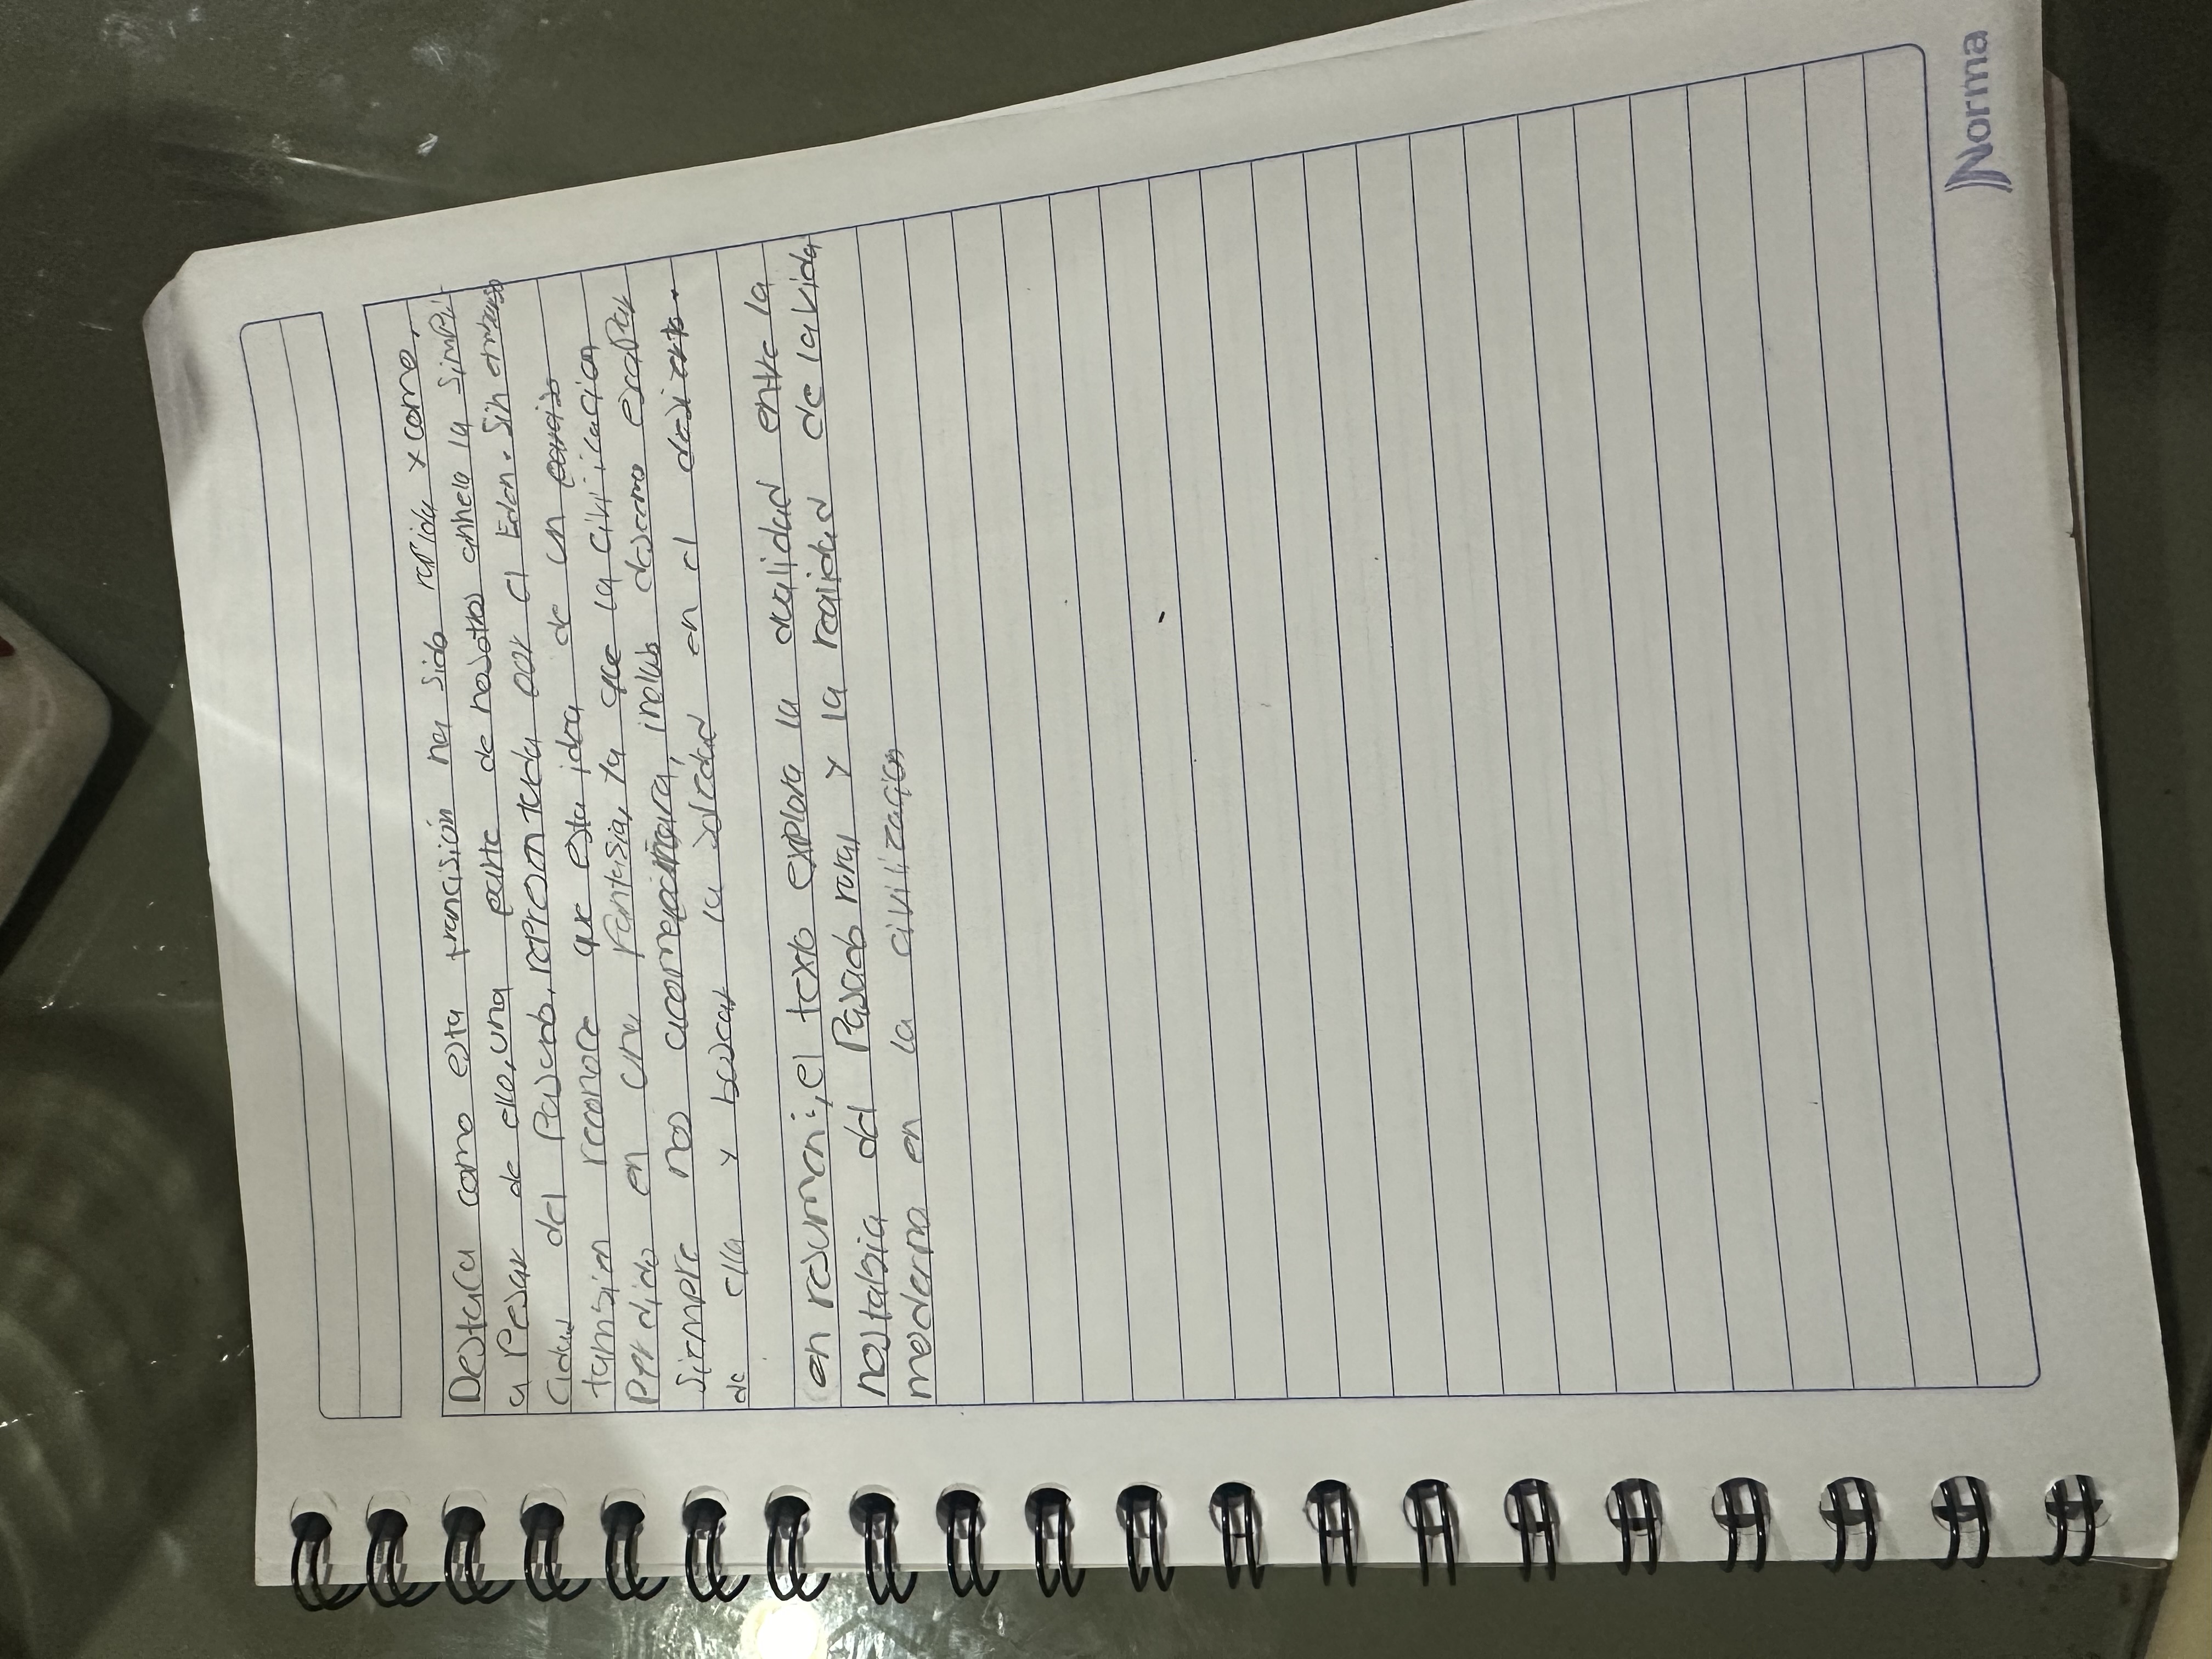 Destaca como esta trancisión ha sido rapida y como,
a pesar de ello, una parte de nosotros anhela la simpli-
cidad del pasado, representada por el Eden. Sin embargo
tambien reconoce que esta idea de un paraiso
perdido en una fantasia, ya que la civilicacion
siempre nos acompañara, incluso descamo escapar
de ella y buscar la soledad en el desierto.
en resumen:, el texto explora la dualidad entre la
nostalgia del Pasado rural y la realidad de la vida
moderna en la civilización
Norma